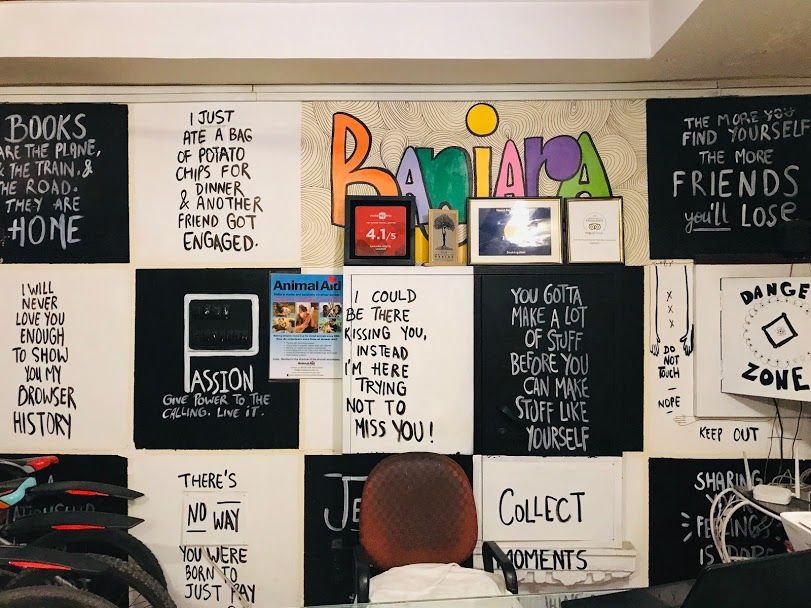 BOOKS
ARE THE PLANE,
& THE TRAIN, &
THE ROAD.
THEY ARE
HOME
I JUST
ATE A BAG
OF POTATO
CHIPS FOR
DINNER
& ANOTHER
FRIEND GOT
ENGAGED.
Banjara
4.1/5
THE MORE YOU
FIND YOURSELF
THE MORE
FRIENDS
you'll LOSE
I WILL
NEVER
LOVE YOU
ENOUGH
TO SHOW
YOU MY
BROWSER
HISTORY
PASSION
GIVE POWER TO THE
CALLING. LIVE IT.
Animal Aid
I COULD
BE THERE
KISSING YOU,
INSTEAD
I'M HERE
TRYING
NOT TO
MISS YOU!
YOU GOTTA
MAKE A LOT
OF STUFF
BEFORE YOU
CAN MAKE
STUFF LIKE
YOURSELF
X
X
X
DO
NOT
TOUCH
NOPE
DANGE
ZONE
KEEP OUT
THERE'S
NO WAY
YOU WERE
BORN TO
JUST PAY
COLLECT
MOMENTS
SHARING
YOUR
FEELINGS
IS